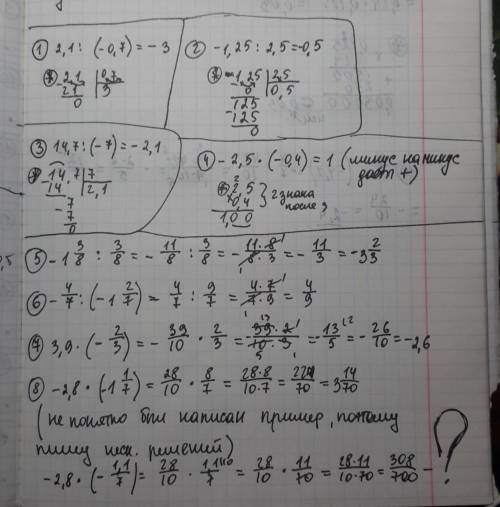 ① 2,1 : (-0,7) = -3
2,1 | 0,7
21 | 3
0
② -1,25 : 2,5 = -0,5
1,25 | 2,5
0 | 0,5
125
125
0
③ 14,7 : (-7) = -2,1
14,7 | 7
14 | 2,1
7
7
0
④ -2,5 · (-0,4) = 1 (минус на минус
даёт +)
2,5
0,4
1,00
} 2 знака
после ,
⑤ -1 3/8 : 3/8 = -11/8 : 3/8 = -11·8/8·3 = -11/3 = -3 2/3
⑥ -4/7 : (-1 2/7) = 4/7 : 9/7 = 4·7/7·9 = 4/9
⑦ 3,9 · (-2/3) = -39/10 · 2/3 = -39·2/10·3 = -13/5 = -26/10 = -2,6
⑧ -2,8 · (-1 1/7) = 28/10 · 8/7 = 28·8/10·7 = 224/70 = 3 14/70
(не понятно был написан пример, поэтому
пишу неск. решений)
-2,8 · (-1,1/7) = 28/10 · 1,1/7 = 28/10 · 11/70 = 28·11/10·70 = 308/700 - ?